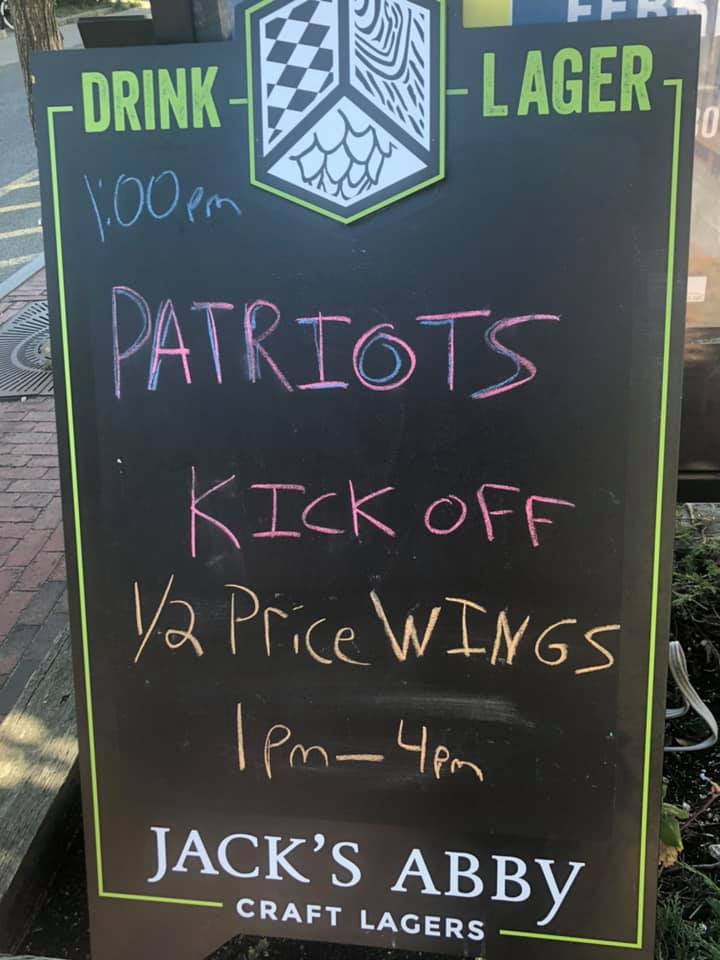 DRINK LAGER
1:00 pm
PATRIOTS
KICK OFF
1/2 Price WINGS
1pm - 4pm
JACK'S ABBY
CRAFT LAGERS